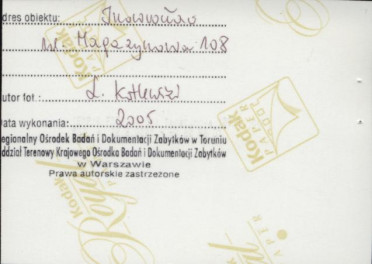 dres obiektu: Inowrocław
ul. Magazynowa 108
utor fot.:
ata wykonania: 2005
egionalny Ośrodek Badań i Dokumentacji Zabytków w Toruniu
ddział Terenowy Krajowego Ośrodka Badań i Dokumentacji Zabytków
w Warszawie
Prawa autorskie zastrzeżone
Kodak
PAPER
Kodak
PAPER
Kodak
PAPER